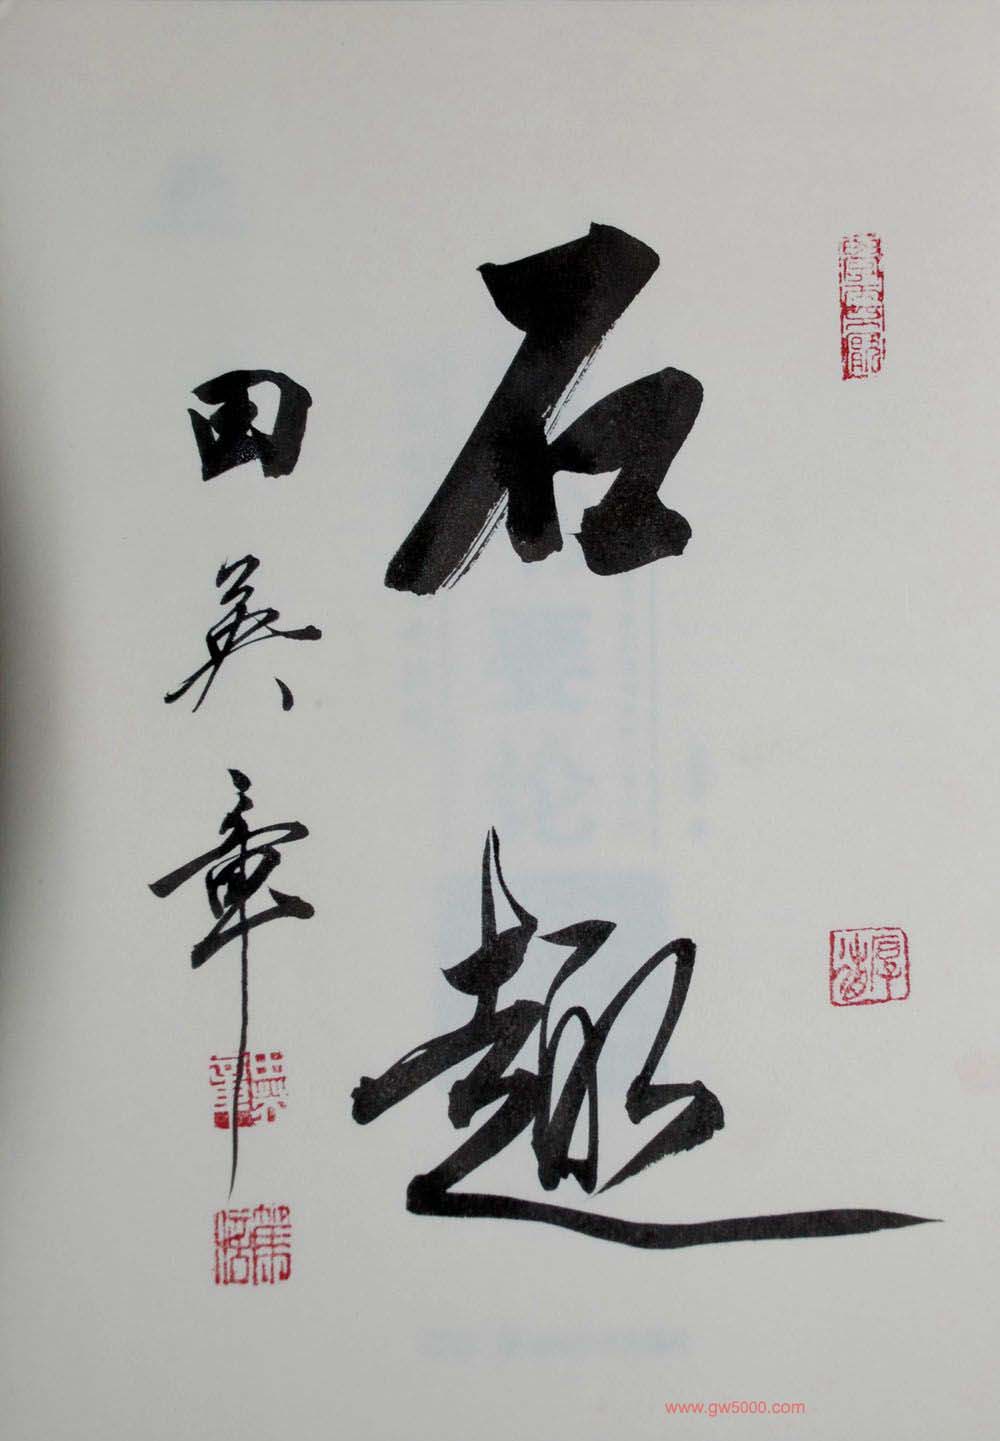 石趣
田英章
www.gw5000.com